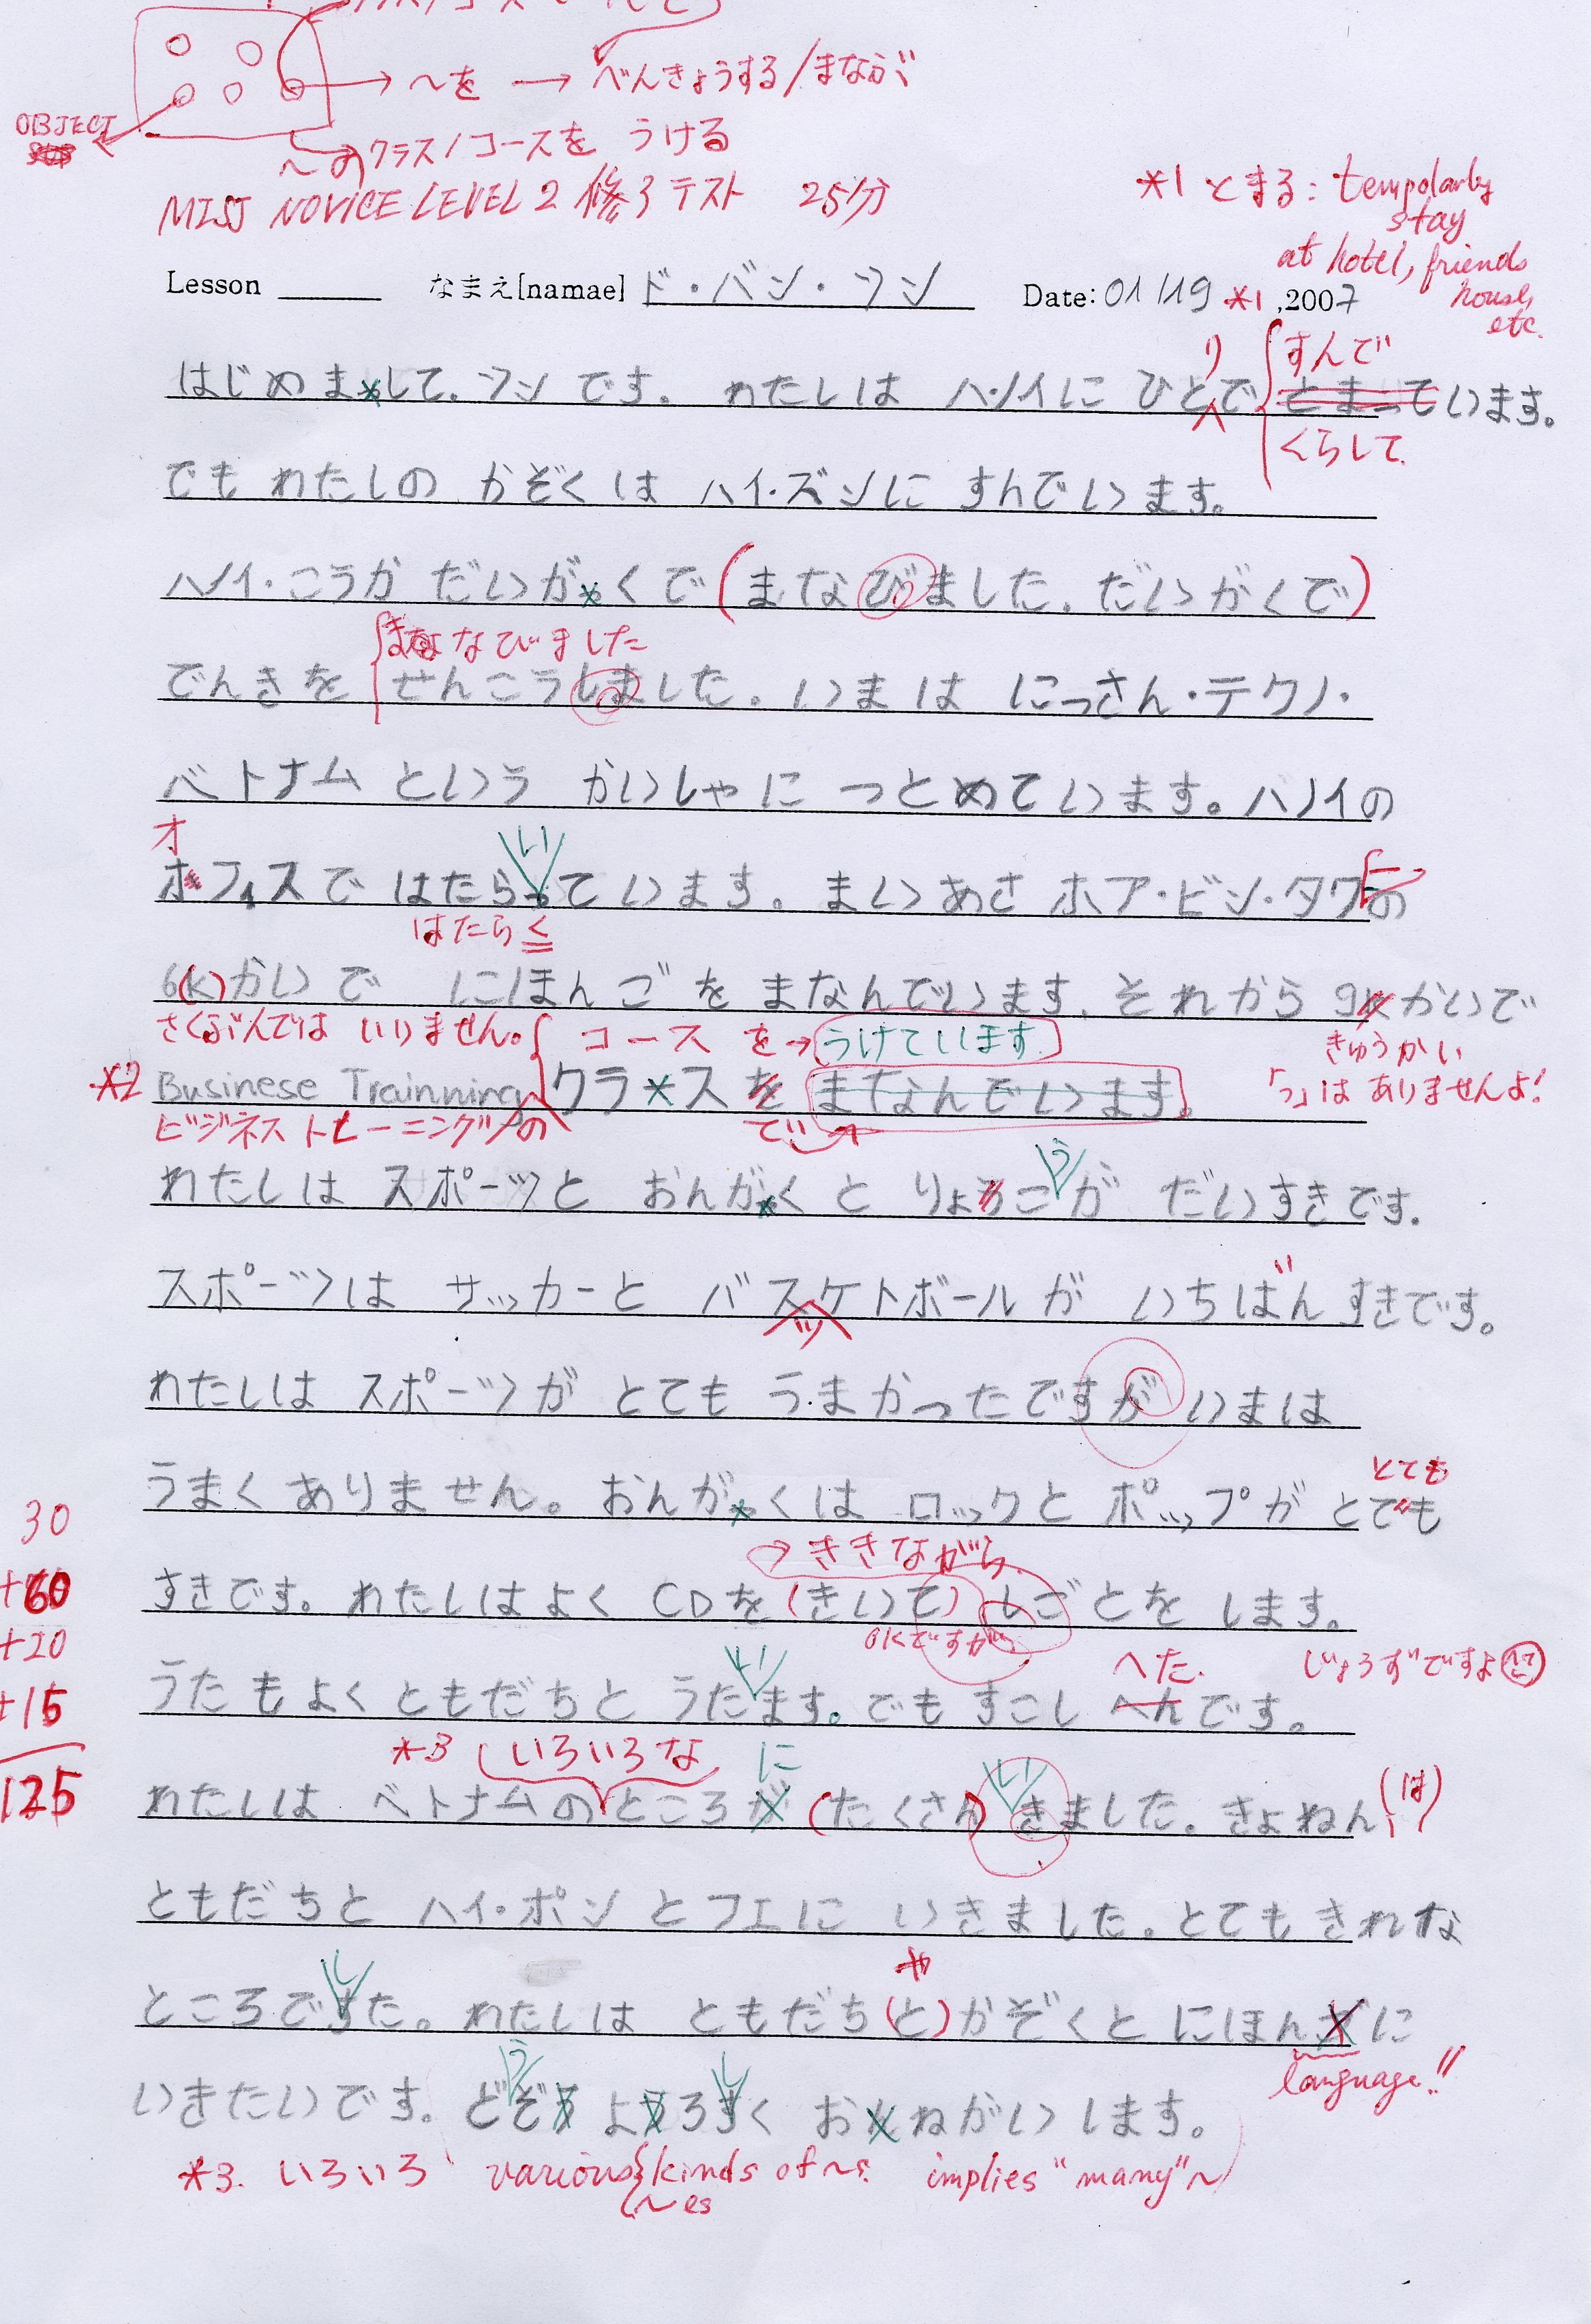 OBJECT
〜を → べんきょうする/まなぶ
〜のクラス/コースを うける
MISJ NOVICE LEVEL 2 修了テスト 25分
*1 とまる: tempolarby
stay
at hotel, friends
house,
etc.
Lesson なまえ[namae] ド・バン・ツン Date: 01/19 *1 ,2007
り すんで
はじめまして、ツンです。わたしは ハノイに ひとで とまっています。
くらして
でも わたしの かぞくは ハイ・ズンに すんでいます。
ハノイ・こうか だいがくで (まなびました。だいがくで)
まなびました
でんきを せんこうしました。いまは にっさん・テクノ・
ベトナム という かいしゃに つとめています。ハノイの
オ い ー
ホフィスで はたらって います。まいあさ ホア・ビン・タワの
はたらく
6(k)かいで にほんごを まなんでいます。それから 9kかいで
さくぶんでは いりません。 コース を→うけています。 きゅうかい
*2 Businese Trainning クラスを まなんでいます。 「っ」は ありませんよ!
ビジネストレーニングの で
う
わたしは スポーツと おんがくと りょろこが だいすきです。
スポーツは サッカーと バスケトボールが いちばん すきです。
ッ
わたしは スポーツが とても うまかったですが いまは
とても
うまく ありません。おんがくは ロックと ポップが とでも
→ききながら
すきです。わたしはよく CDを(きいて) しごとを します。
OKですが
い へた. じょうずですよ
うたもよく ともだちと うたます。でも すこし へんです。
*3 いろいろな に い (は)
わたしは ベトナムのところが (たくさん) きました。きょねん、
ともだちと ハイ・ポンとフエに いきました。とても きれな
し や
ところですた。わたしは ともだち(と)かぞくと にほんごに
language!!
う し
いきたいです。どぞう ようろすく おんねがいします。
*3. いろいろ various kinds of 〜s. implies "many" 〜
〜es
30
+60
+20
+15
125